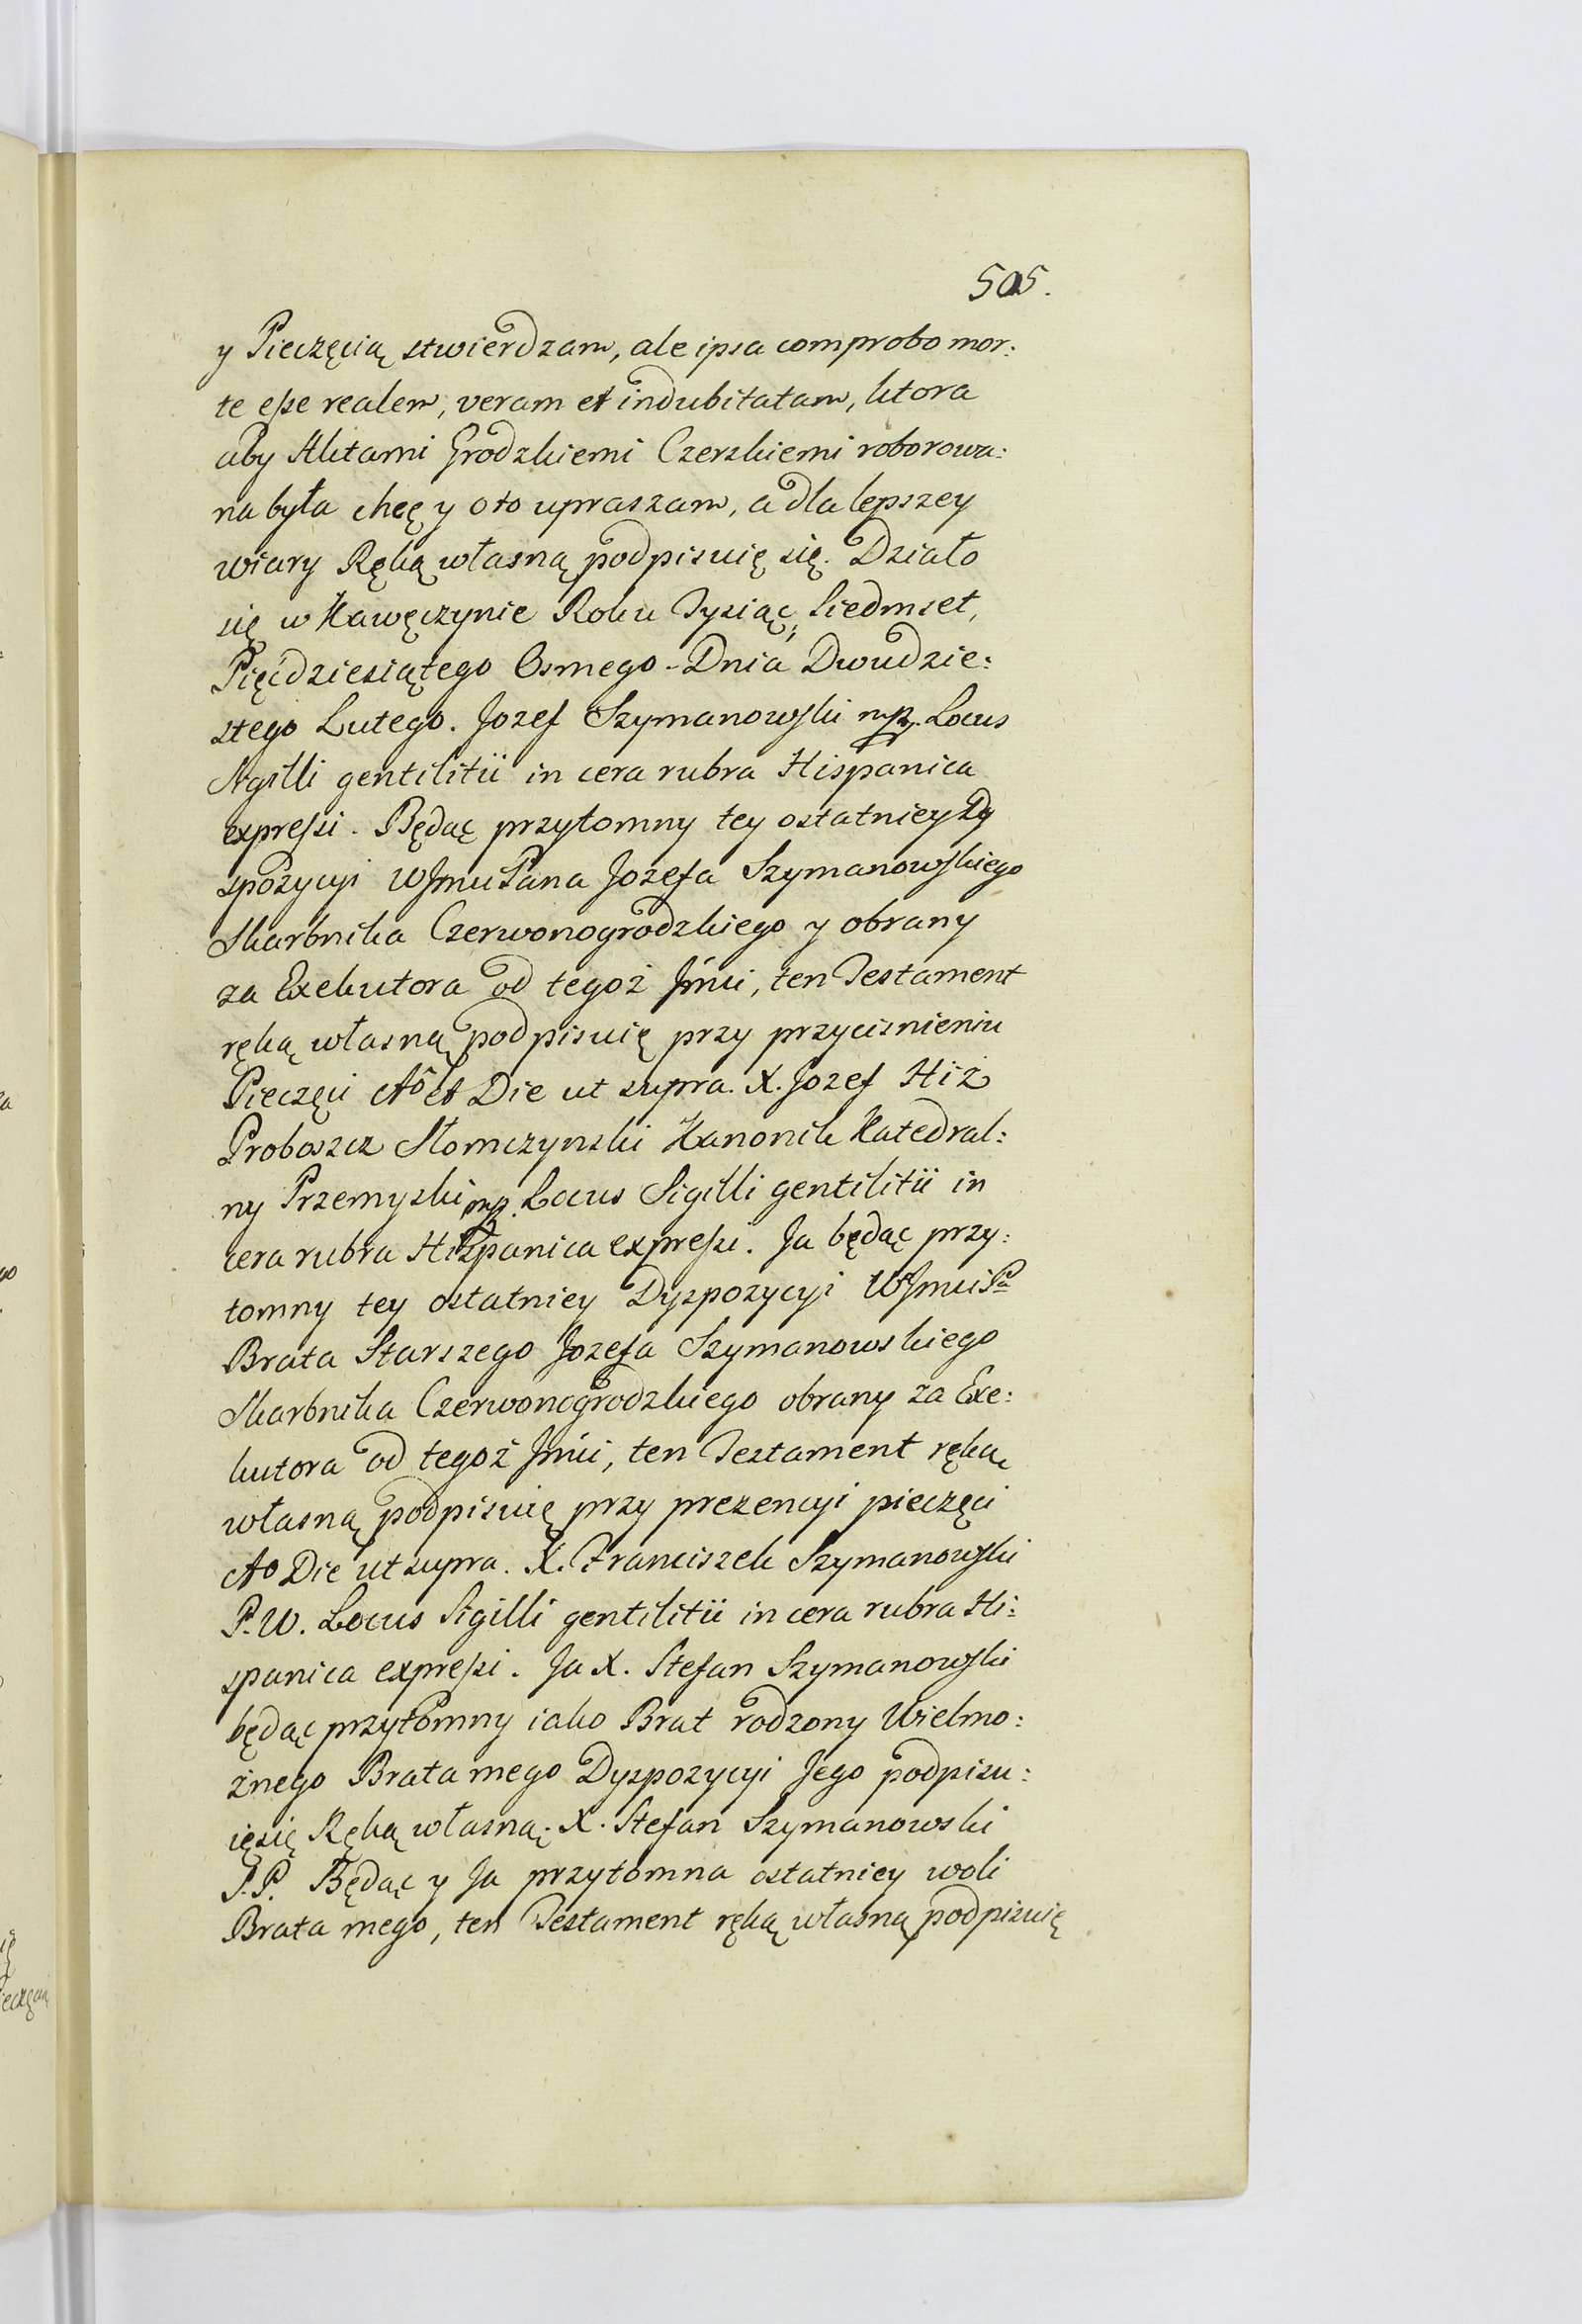 505.
y Pieczęcią stwierdzam, ale ipsa comprobo mor:
te eſse realem, veram et indubitatam, ktora
aby Aktami Grodzkiemi Czerskiemi roborowa:
na była chcę y oto upraszam, a dla lepszey
wiary Ręką własną podpisuię się. Działo
się w Kawęczynie Roku Tysiąc, Siedmset,
Pięćdziesiątego Osmego - Dnia Dwudzie:
stego Lutego. Jozef Szymanowski mp. Locus
Sigilli gentilitii in cera rubra Hispanica
expreſsi. Będąc przytomny tey ostatniey Dy
spozycyi WJmu Pana Jozefa Szymanowskiego
Skarbnika Czerwonogrodzkiego y obrany
za Exekutora od tegoż Jmći, ten Testament
ręką własną podpisuię przy przyciśnieniu
Pieczęci Aô et Die ut supra. X. Jozef Hiż
Proboszcz Słomczynski Kanonik Katedral:
ny Przemyski mp. Locus Sigilli gentilitii in
cera rubra Hiszpanica expreſsi. Ja będąc przy:
tomny tey ostatniey Dyspozycyi WJmći Pa
Brata Starszego Jozefa Szymanowskiego
Skarbnika Czerwonogrodzkiego obrany za Exe:
kutora od tegoż Jmći, ten Testament ręką
własną podpisuię przy prezencyi pieczęci
Ao Die ut supra. X. Franciszek Szymanowski
P. W. Locus Sigilli gentilitii in cera rubra Hi:
spanica expreſsi. Ja X. Stefan Szymanowski
będąc przytomny iako Brat rodzony Wielmo:
żnego Brata mego Dyspozycyi Jego podpisu:
ię się Ręką własną. X. Stefan Szymanowski
P. Będąc y Ja przytomna ostatniey woli
Brata mego, ten Testament ręką własną podpisuię